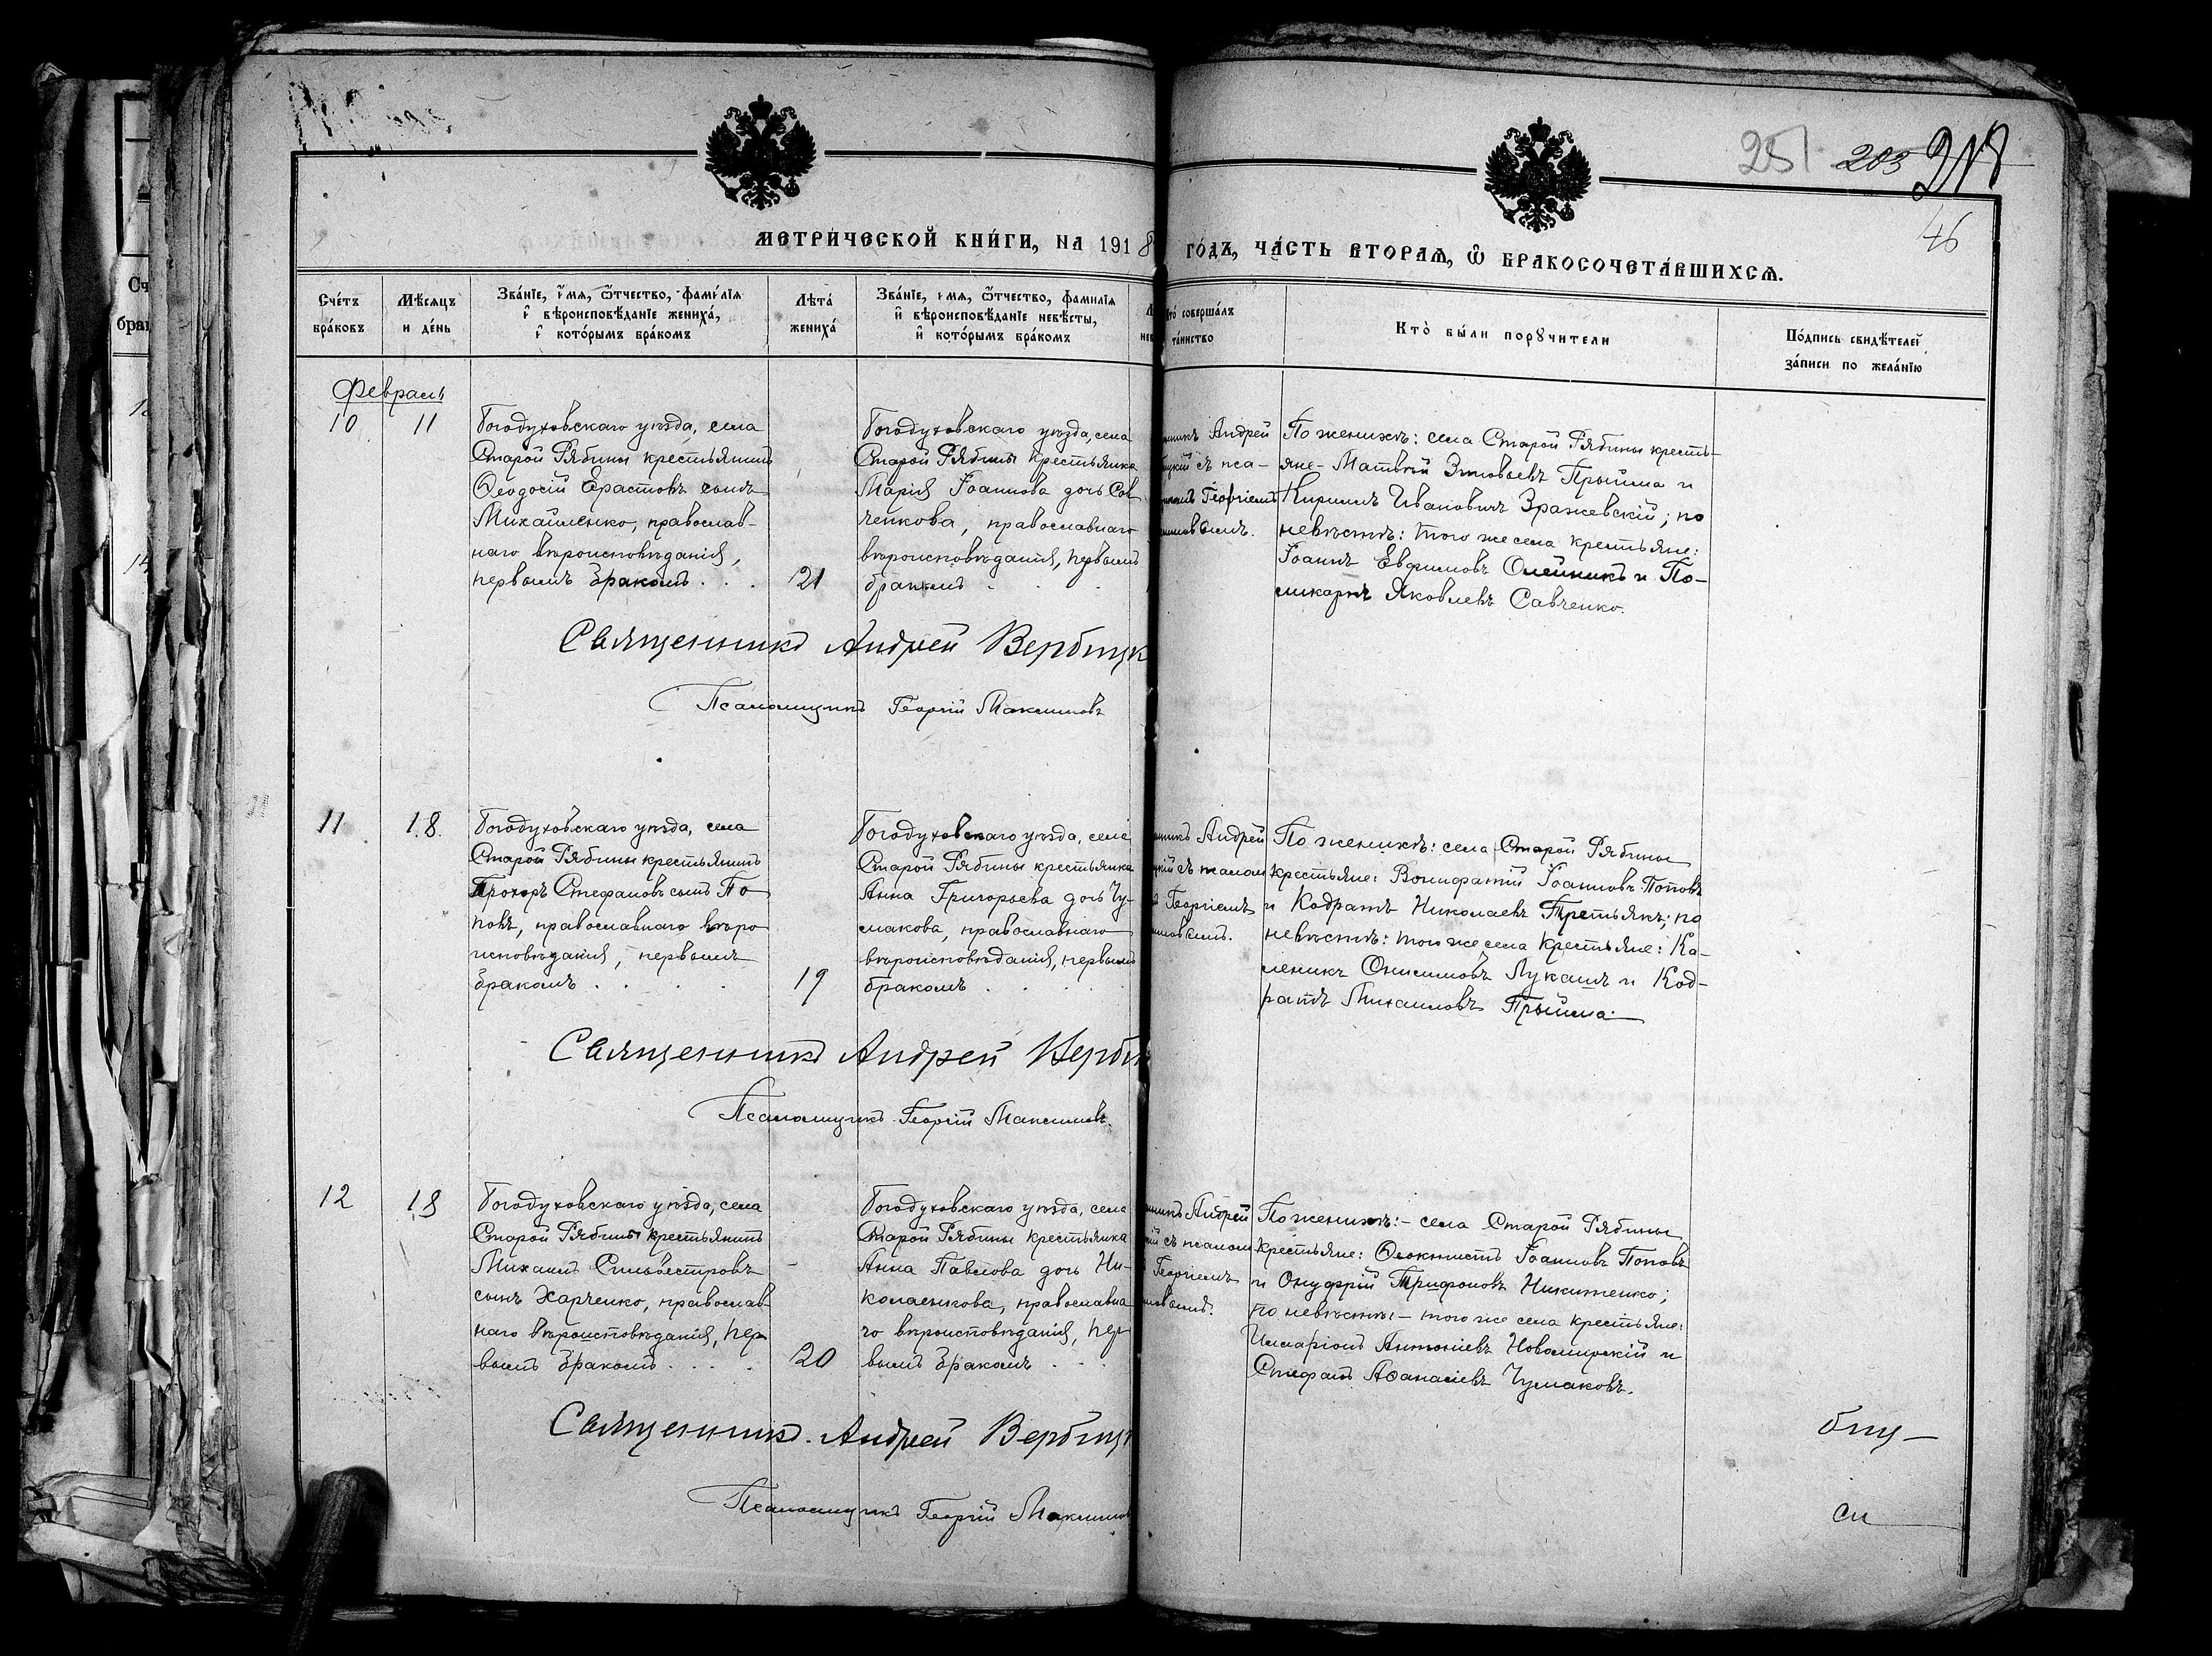 251 203 218
46
МЕТРИЧЕСКОЙ КНИГИ, НА 1918 ГОДЪ, ЧАСТЬ ВТОРАЯ, Ѡ БРАКОСОЧЕТАВШИХСЯ.
Счетъ браковъ
Мѣсяцъ и день
Званіе, имя, ѿтчество, фамилія
и вѣроисповѣданіе жениха,
и которымъ бракомъ
Лѣта
жениха
Званіе, имя, ѿтчество, фамилія
и вѣроисповѣданіе невѣсты,
и которымъ бракомъ
совершалъ
таинство
Кто были порꙋчители
Подпись свидѣтелей
записи по желанію
Февраль
10
11
Богодуховскаго уѣзда, села
Старой Рябины крестьянинъ
Ѳеодосій Ерастовъ сынъ
Михайленко, православ-
наго вѣроисповѣданія,
первымъ бракомъ . . .
21
Богодуховскаго уѣзда, села
Старой Рябины крестьянка
Марія Іоаннова дочь Сав
ченкова, православнаго
вѣроисповѣданія, первымъ
бракомъ . . .
Андрей
съ пса-
Георгіемъ
По женихѣ: села Старой Рябины кресть-
яне - Матвѣй Зиновьевъ Прыйма и
Кириллъ Ивановичъ Зражевскій; по
невѣстѣ: того же села крестьяне:
Іоаннъ Евфимовъ Олейникъ и По-
ликарпъ Яковлевъ Савченко.
Священникъ Андрей Вербицк
Псаломщикъ Георгій Максимовъ
11
18.
Богодуховскаго уѣзда, села
Старой Рябины крестьянинъ
Прохоръ Стефановъ сынъ По
повъ, православнаго вѣро
исповѣданія, первымъ
бракомъ . . . .
19
Богодуховскаго уѣзда, села
Старой Рябины крестьянка
Анна Григорьева дочь Чу-
макова, православнаго
вѣроисповѣданія, первымъ
бракомъ . . . .
Андрей
съ псалом
Георгіемъ
По женихѣ: села Старой Рябины
крестьяне: Вонифатій Іоанновъ Поповъ
и Кодратъ Николаевъ Третьякъ; по
невѣстѣ: того же села крестьяне: Ка-
леникъ Онисимовъ Лукашъ и Код-
ратъ Михаиловъ Прыйма.
Священникъ Андрей Верби
Псаломщикъ Георгій Максимовъ.
12
18
Богодуховскаго уѣзда, села
Старой Рябины крестьянинъ
Михаилъ Сильвестровъ
сынъ Харченко, православ-
наго вѣроисповѣданія, пер
вымъ бракомъ . . . .
20
Богодуховскаго уѣзда, села
Старой Рябины крестьянка
Анна Павлова дочь Ни-
колаенкова, православна
го вѣроисповѣданія, пер
вымъ бракомъ . . .
Андрей
съ псалом
Георгіемъ
По женихѣ: - села Старой Рябины
крестьяне: Ѳеоктистъ Іоанновъ Поповъ
и Онуфрій Трифоновъ Никитенко;
по невѣсты - того же села крестьяне:
Илларіонъ Антоніевъ Новомирскій и
Стефанъ Аѳанасіевъ Чумаковъ.
Священникъ. Андрей Вербиц
Псаломщикъ Георгій Максимов